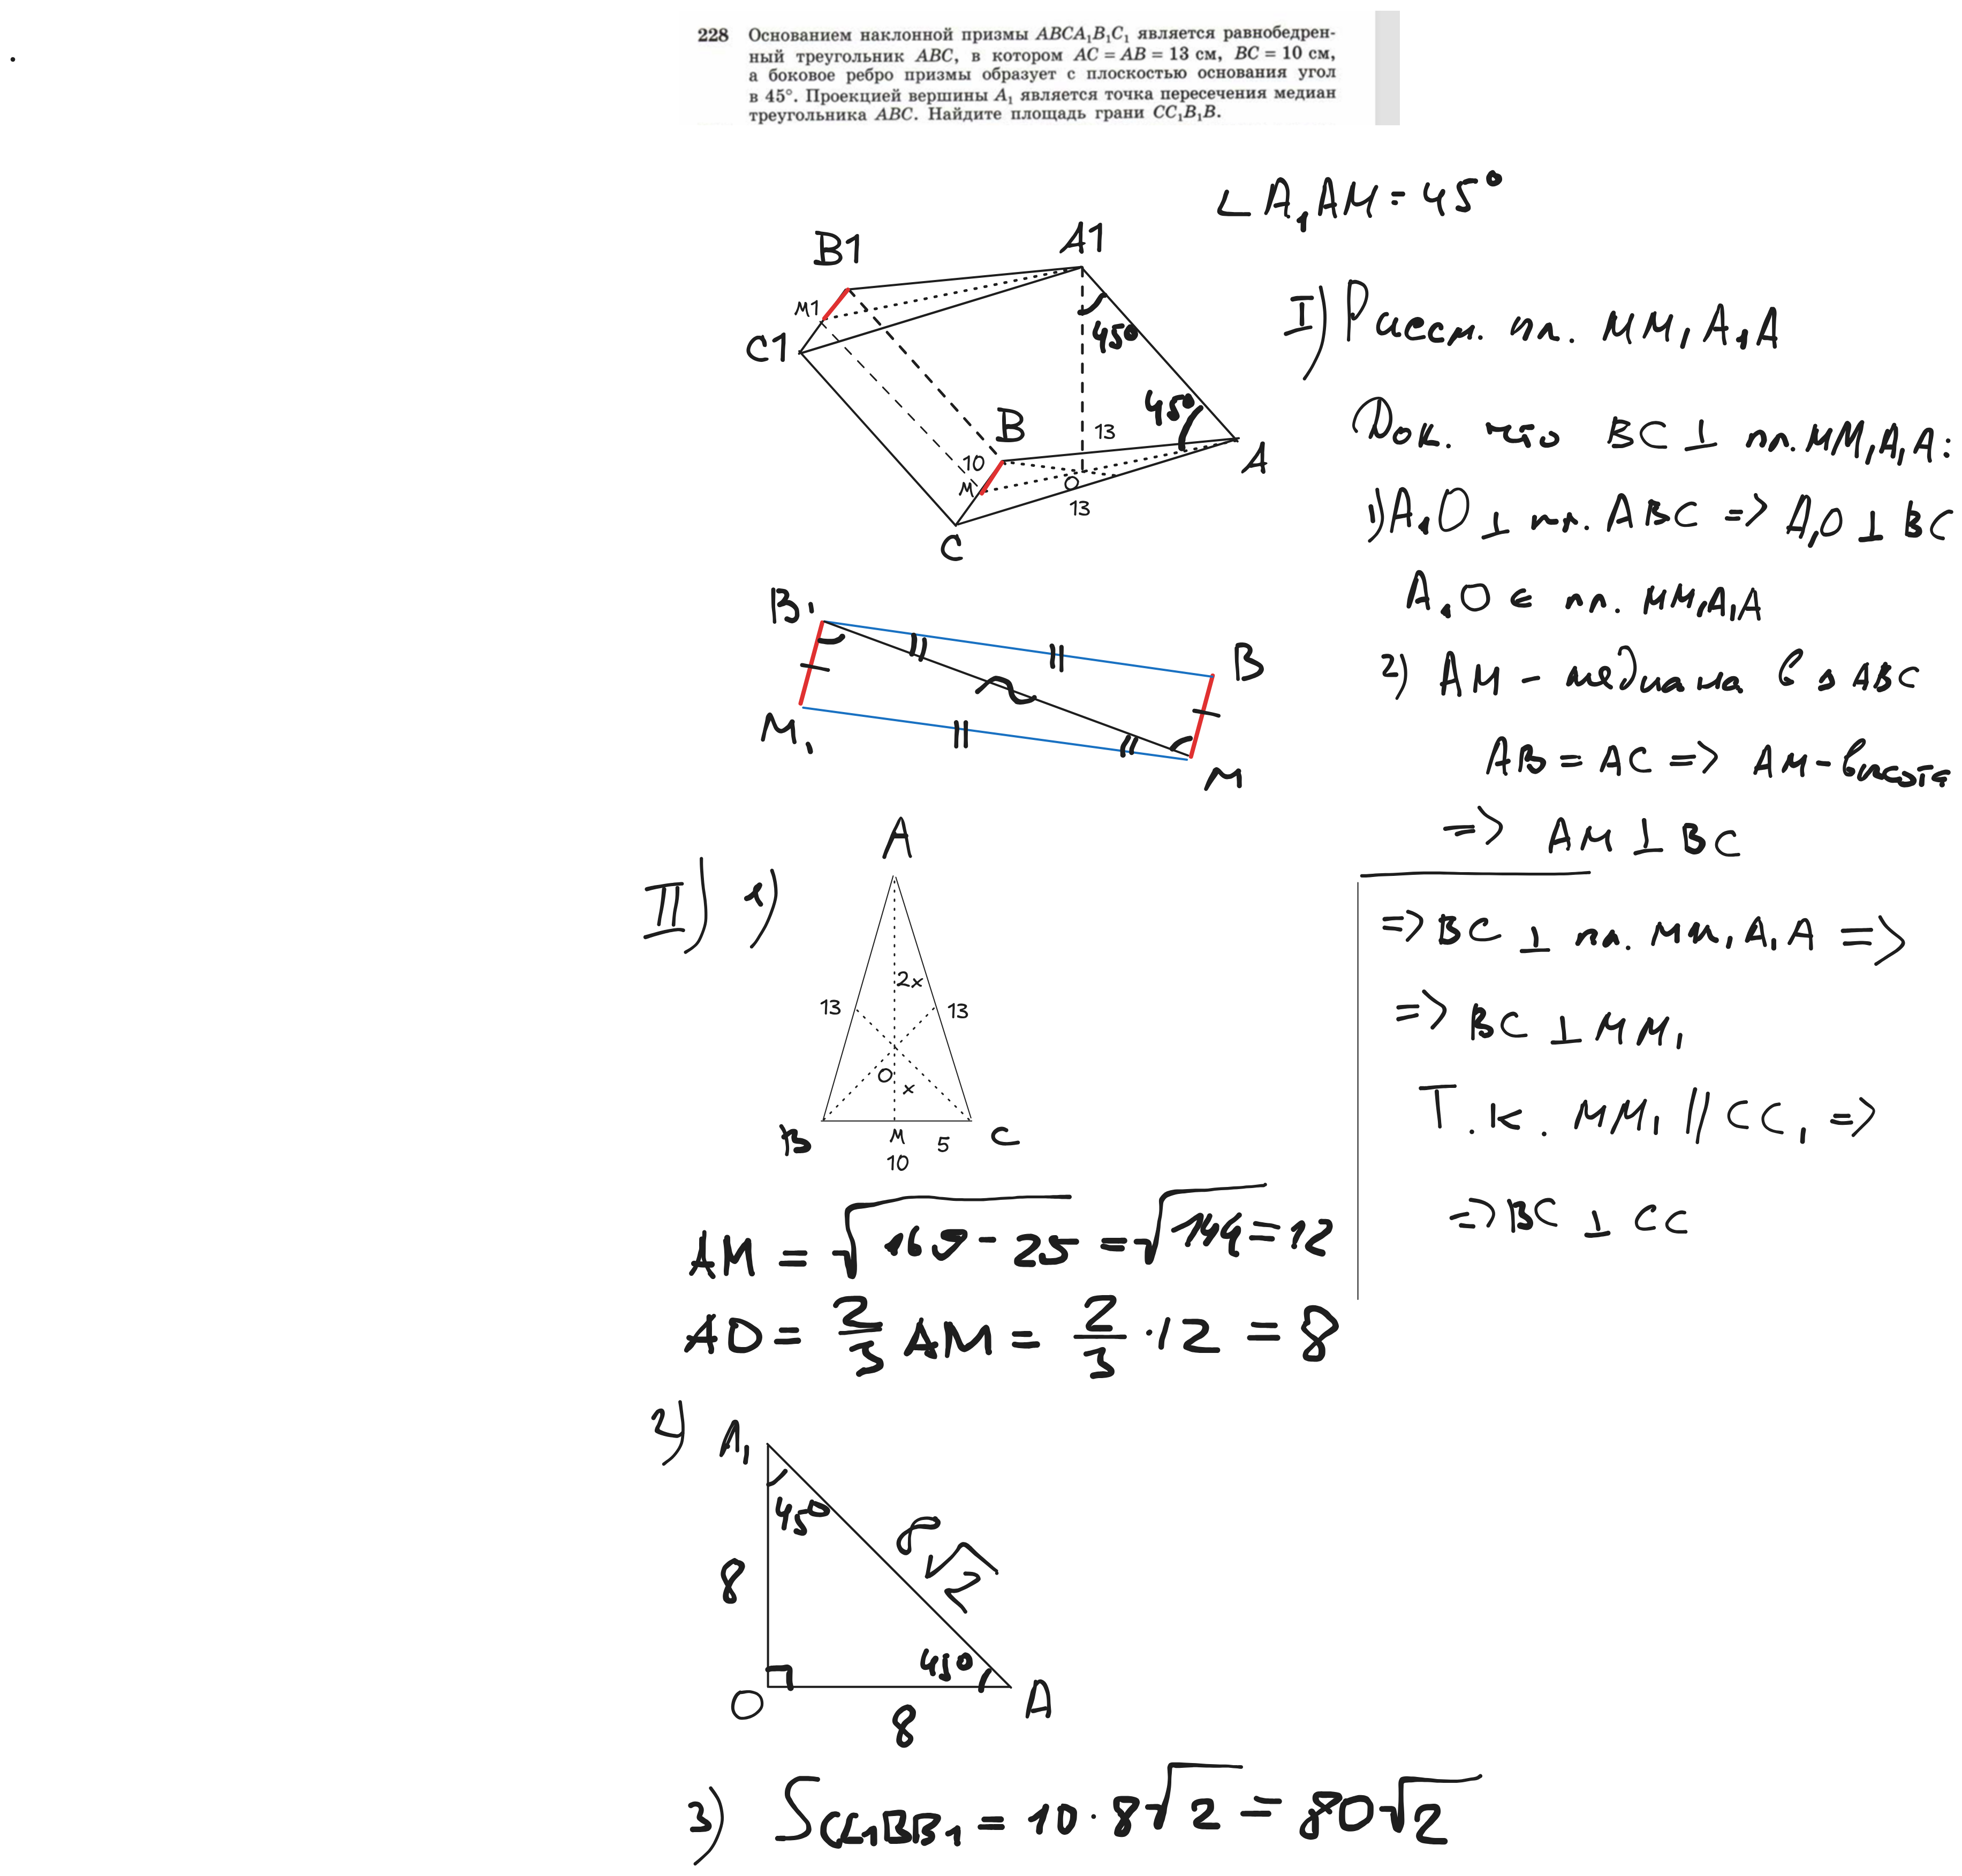 228 Основанием наклонной призмы ABCA₁B₁C₁ является равнобедрен-
ный треугольник ABC, в котором AC = AB = 13 см, BC = 10 см,
а боковое ребро призмы образует с плоскостью основания угол
в 45°. Проекцией вершины A₁ является точка пересечения медиан
треугольника ABC. Найдите площадь грани CC₁B₁B.
∠A₁AM = 45°
B1
A1
M1
C1
45°
45°
B
13
A
10
M
O
13
C
I) Рассм. пл. MM₁A₁A
Док. что BC ⊥ пл. MM₁A₁A:
1) A₁O ⊥ пл. ABC => A₁O ⊥ BC
A₁O ∈ пл. MM₁A₁A
2) AM – медиана в △ABC
AB = AC => AM – высота
=> AM ⊥ BC
=> BC ⊥ пл. MM₁A₁A =>
=> BC ⊥ MM₁
Т.к. MM₁ || CC₁ =>
=> BC ⊥ CC
B₁
B
M₁
M
II) 1)
A
2x
13
13
O
x
B
M
5
C
10
AM = √169 - 25 = √144 = 12
AO = 2/3 AM = 2/3 · 12 = 8
2)
A₁
45°
8√2
8
45°
O
A
8
3) SCC₁BB₁ = 10 · 8√2 = 80√2